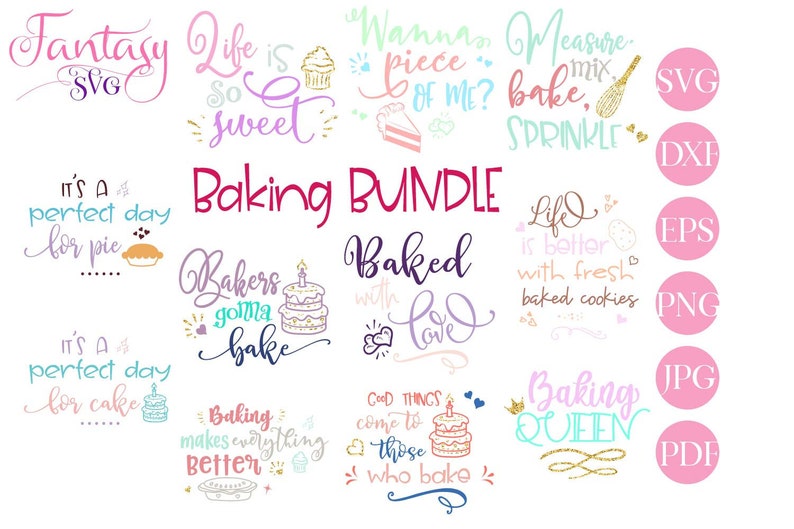 Fantasy
SVG
Life is
so
sweet
Wanna
piece
OF ME?
Measure
mix,
bake,
SPRINKLE
SVG
DXF
EPS
PNG
JPG
PDF
Baking BUNDLE
IT'S A
perfect day
for pie
Bakers
gonna
bake
Baked
with
love
Life
is better
with fresh
baked cookies
IT'S A
perfect day
for cake
Baking
makes everything
BETTER
GOOD THINGS
come to
those
who bake
Baking
QUEEN